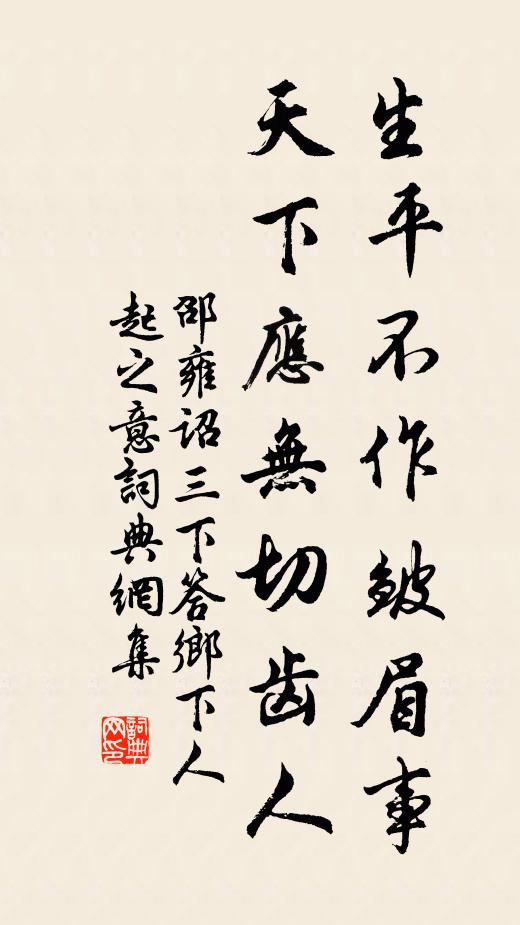 生平不作皺眉事
天下應無切齒人
邵雍詔三下答鄉下人
起之意詞典網集
詞典
网印